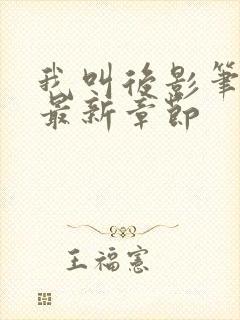 我叫後影筆
最新章節
王福憲